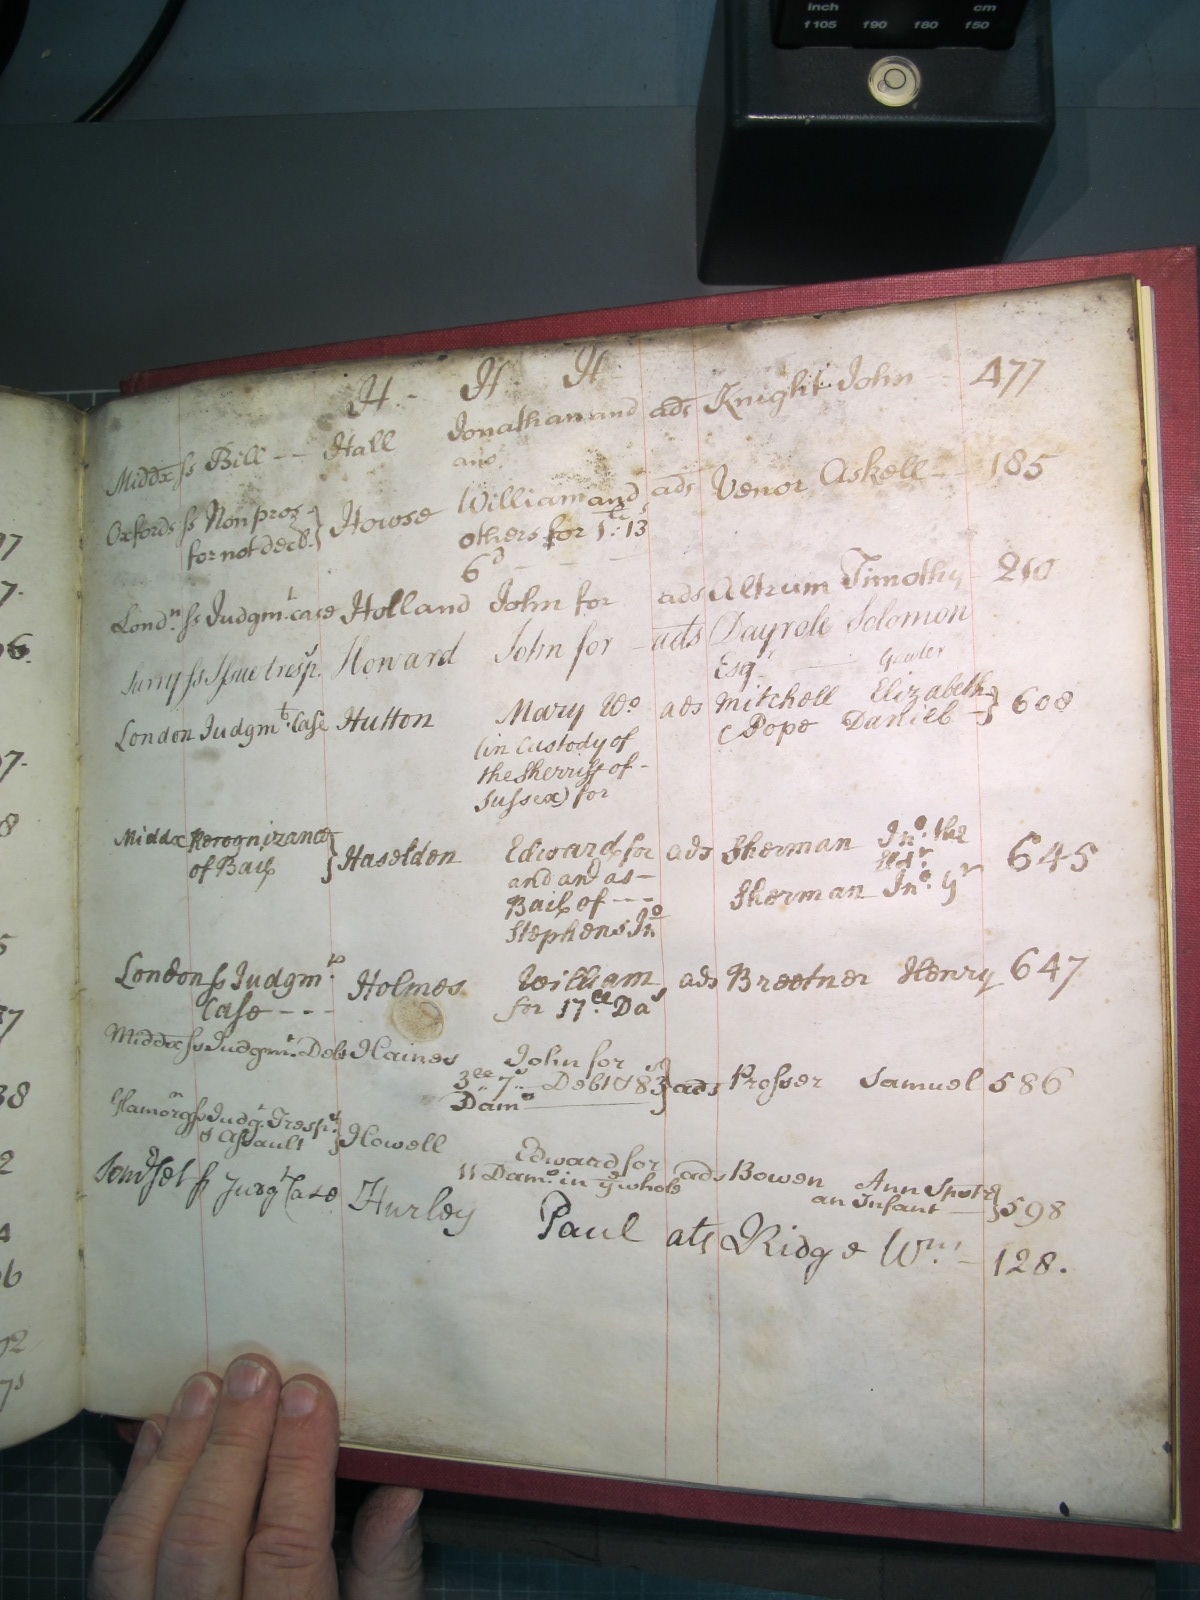 inch cm
f105 f90 f80 f50
H H H
Middx ss Bill -- Hall Jonathan and ads Knight John 477
ano.
Oxfords ss Non pros - Howse William and ads Venor Askell 185
for not decl. others for 1: 13
6d
Londn ss Judgmt. case Holland John for ads Altrum Timothy 210
Surry ss Issue tresp. Howard John for ats Dayrole Solomon
Esqr Gawler
London Judgmt. Case Hutton Mary Wo ads Mitchell Elizabeth 608
(in Custody of & Pope Daniel
the Sherriff of -
Sussex) for
Middx Recognizance Haselden Edward for ads Sherman Jno. the 645
of Bail and and as - Eldr.
Bail of --- Sherman Jno. yr
Stephens Jno
London ss Judgmt. Holmes William ads Breetner Henry 647
Case --- for 17ll. Das
Middx ss Judgmt. Debt Haines John for
3ll. 7s. Debt & 83s ads Prosser Samuel 586
Dams
Glamorgn ss Judgt. Tresps Howell Edward for ads Bowen Ann Spr
& Assault 11 Dams. in ye whole an Infant 598
Somerset ss Judgt Case Hurley Paul ats Ridge Wm. 128.